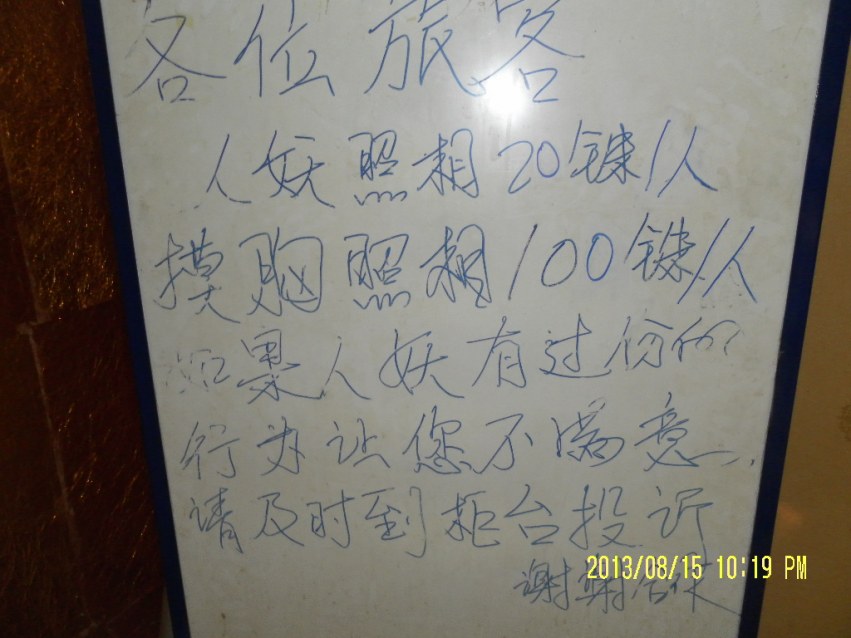 各位旅客
人妖照相20铢/人
摸胸照相100铢/人
如果人妖有过份的
行为让您不满意.
请及时到柜台投诉
谢谢合作
2013/08/15 10:19 PM